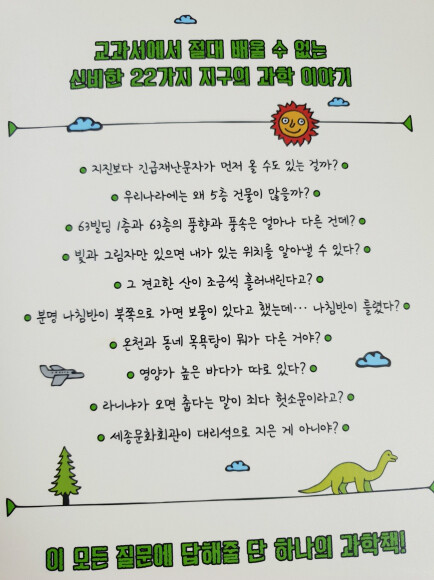 교과서에서 절대 배울 수 없는
신비한 22가지 지구의 과학 이야기
지진보다 긴급재난문자가 먼저 올 수도 있는 걸까?
우리나라에는 왜 5층 건물이 많을까?
63빌딩 1층과 63층의 풍향과 풍속은 얼마나 다른 건데?
빛과 그림자만 있으면 내가 있는 위치를 알아낼 수 있다?
그 견고한 산이 조금씩 흘러내린다고?
분명 나침반이 북쪽으로 가면 보물이 있다고 했는데… 나침반이 틀렸다?
온천과 동네 목욕탕이 뭐가 다른 거야?
영양가 높은 바다가 따로 있다?
라니냐가 오면 춥다는 말이 죄다 헛소문이라고?
세종문화회관이 대리석으로 지은 게 아니야?
이 모든 질문에 답해줄 단 하나의 과학책!